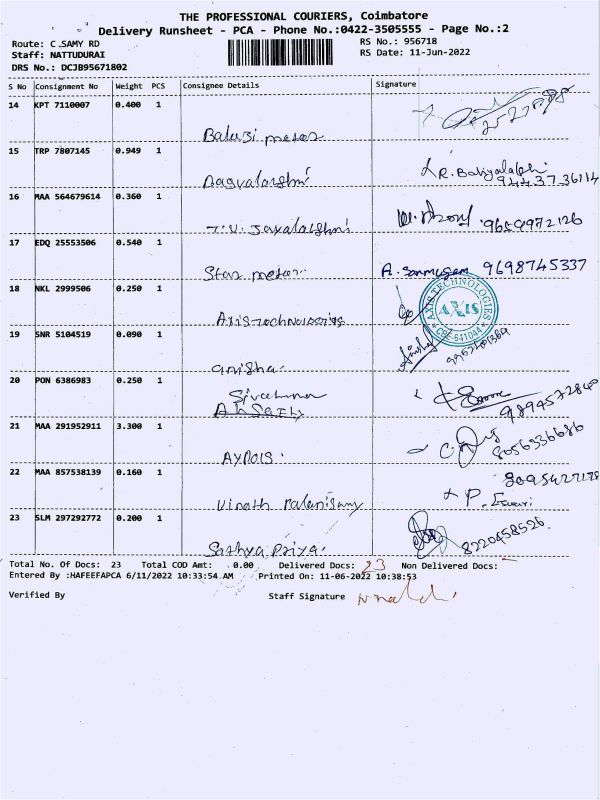 THE PROFESSIONAL COURIERS, Coimbatore
Delivery Runsheet - PCA - Phone No.:0422-3505555 - Page No.:2
Route: C.SAMY RD
RS No.: 956718
Staff: NATTUDURAI
RS Date: 11-Jun-2022
DRS No.: DCJB95671802
S No Consignment No Weight PCS Consignee Details Signature
14 KPT 7110007 0.400 1
Balaji
15 TRP 7807145 0.949 1
R.
9443736114
16 MAA 564679614 0.360 1
9659972126
17 EDQ 25553506 0.540 1
Star
A. Sanmugam 9698745337
18 NKL 2999506 0.250 1
Axis Technologies
AXIS TECHNOLOGIES
AXIS
CBE-641044
19 SNR 5104519 0.090 1
anisha
20 PON 6386983 0.250 1
21 MAA 291952911 3.300 1
8056336686
22 MAA 857538139 0.160 1
Vinoth Palanisamy
P.
23 SLM 297292772 0.200 1
Sathya Priya.
8220458526
Total No. Of Docs: 23 Total COD Amt: 0.00 Delivered Docs: 23 Non Delivered Docs: -
Entered By :HAFEEFAPCA 6/11/2022 10:33:54 AM Printed On: 11-06-2022 10:38:53
Verified By Staff Signature